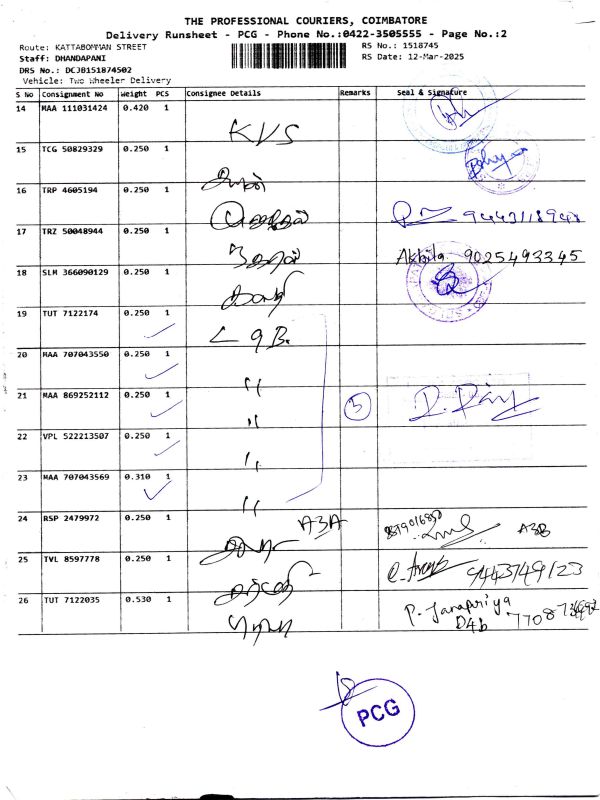 THE PROFESSIONAL COURIERS, COIMBATORE
Delivery Runsheet - PCG - Phone No.:0422-3505555 - Page No.:2
Route: KATTABOMMAN STREET
RS No.: 1518745
Staff: DHANDAPANI
RS Date: 12-Mar-2025
DRS No.: DCJB151874502
Vehicle: Two Wheeler Delivery
S No Consignment No Weight PCS Consignee Details Remarks Seal & Signature
14 MAA 111031424 0.420 1 KVS
15 TCG 50829329 0.250 1
16 TRP 4605194 0.250 1
17 TRZ 50048944 0.250 1 Akhila 9025493345
18 SLM 366090129 0.250 1
19 TUT 7122174 0.250 1
20 MAA 707043550 0.250 1 "
21 MAA 869252112 0.250 1 " 5
22 VPL 522213507 0.250 1 "
23 MAA 707043569 0.310 1 "
24 RSP 2479972 0.250 1 A3A A3B
25 TVL 8597778 0.250 1 9443749123
26 TUT 7122035 0.530 1 P. Janapriya
D4b
PCG